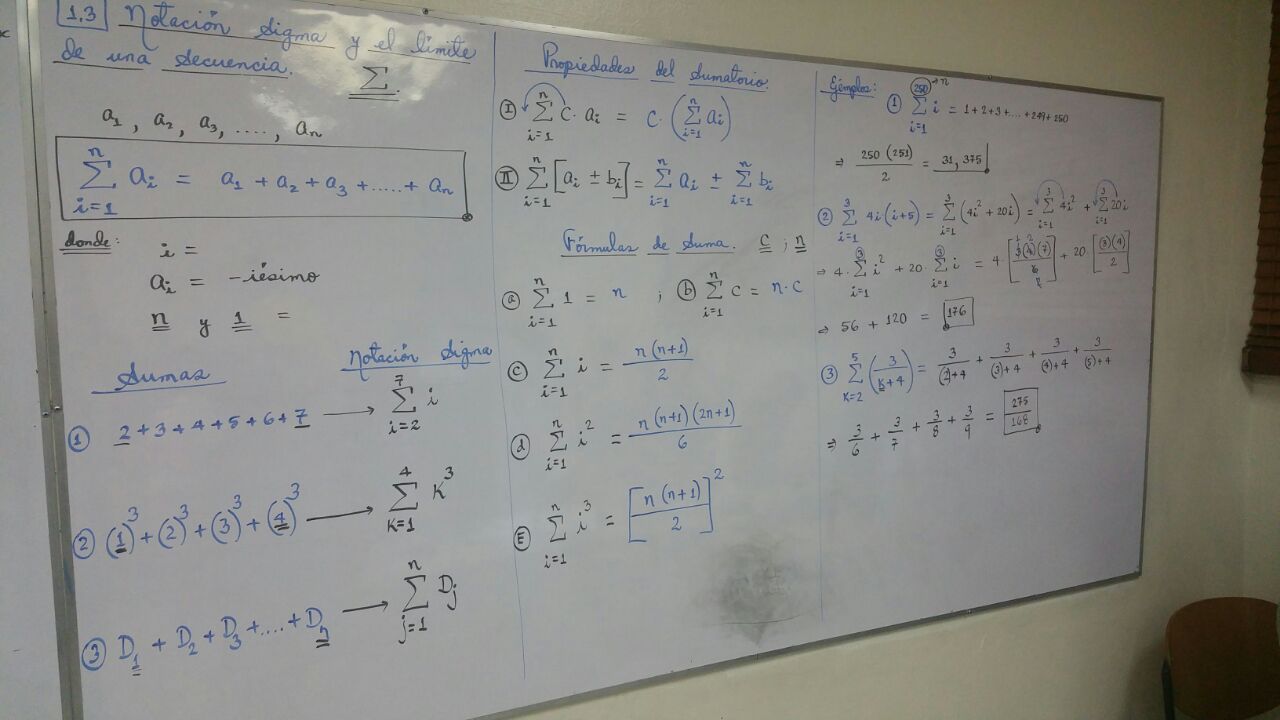 1.3 Notación Sigma y el límite
de una secuencia.
∑.
a₁ , a₂ , a₃ , ...., aₙ
n
∑ aᵢ = a₁ + a₂ + a₃ + ..... + aₙ
i=1
donde:
i =
aᵢ = -iésimo
n y 1 =
Sumas
Notación Sigma
① 2+3+4+5+6+7 → 7 ∑ i i=2
② (1)³+(2)³+(3)³+(4)³ → 4 ∑ K³ K=1
③ D₁ + D₂ + D₃ +....+ Dₙ → n ∑ Dⱼ j=1
Propiedades del Sumatorio.
Ⓘ n ∑ i=1 C·aᵢ = C·(n ∑ i=1 aᵢ)
Ⅱ n ∑ i=1 [aᵢ ± bᵢ] = n ∑ i=1 aᵢ ± n ∑ i=1 bᵢ
Fórmulas de Suma. c ; n
ⓐ n ∑ i=1 1 = n ; ⓑ n ∑ i=1 C = n·C
ⓒ n ∑ i=1 i = n(n+1)/2
ⓓ n ∑ i=1 i² = n(n+1)(2n+1)/6
Ⓔ n ∑ i=1 i³ = [n(n+1)/2]²
Ejemplos:
① 250 → n ∑ i=1 i = 1+2+3+....+249+250
⇒ 250(251)/2 = 31,375
② 3 ∑ i=1 4i(i+5) = 3 ∑ i=1 (4i²+20i) = 3 ∑ i=1 4i² + 3 ∑ i=1 20i
⇒ 4· 3 ∑ i=1 i² + 20· 3 ∑ i=1 i = 4·[3(4)(7)/6] + 20·[(3)(4)/2]
⇒ 56 + 120 = 176
③ 5 ∑ K=2 (3/(K+4)) = 3/((2)+4) + 3/((3)+4) + 3/((4)+4) + 3/((5)+4)
⇒ 3/6 + 3/7 + 3/8 + 3/9 = 275/168